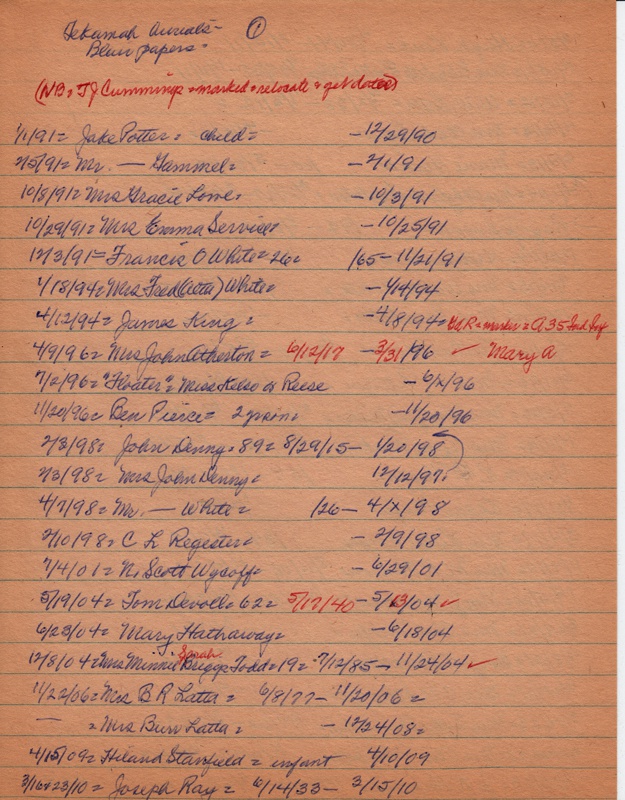 Tekamah Burials - ①
Blair papers =
(NB = TJ Cummings = marked = relocate + get dates)
1/1/91 = Jake Potter = child = - 12/29/90
2/5/91 = Mr. — Gammel = - 2/1/91
10/8/91 = Mrs Gracie Lowe = - 10/3/91
10/29/91 = Mrs Emma Service = - 10/25/91
12/3/91 = Francis O White = 26 = /65 - 11/21/91
1/18/94 = Mrs Fred (Etta) White = - 1/14/94
4/12/94 = James King = - 4/8/94 = GAR = marker = A 35 Ind Inf
4/9/96 = Mrs John Atherton = 6/12/17 - 3/31/96 ✓ Mary A
7/2/96 = "Floater" = Miss Kelso or Reese - 6/x/96
11/20/96 = Ben Pierce = - 11/20/96
2/3/98 = John Denny = 89 = 8/29/15 - 1/20/98
2/3/98 = Mrs John Denny = 12/12/97
4/7/98 = Mr. — White = /26 - 4/x/98
2/10/98 = C L Register = - 2/9/98
7/4/01 = N. Scott Wycoff = - 6/29/01
5/19/04 = Tom Devoll = 62 = 5/17/40 - 5/13/04 ✓
6/23/04 = Mary Hathaway = - 6/18/04
12/8/04 = Mrs Minnie Sarah Briggs Todd = 19 = 7/12/85 - 11/24/04 ✓
11/22/06 = Mrs B R Latta = 6/8/77 - 11/20/06 =
— = Mrs Burr Latta = - 12/24/08 =
4/15/09 = Hiland Stanfield = infant 4/10/09
3/16+23/10 = Joseph Ray = 6/14/33 - 3/15/10